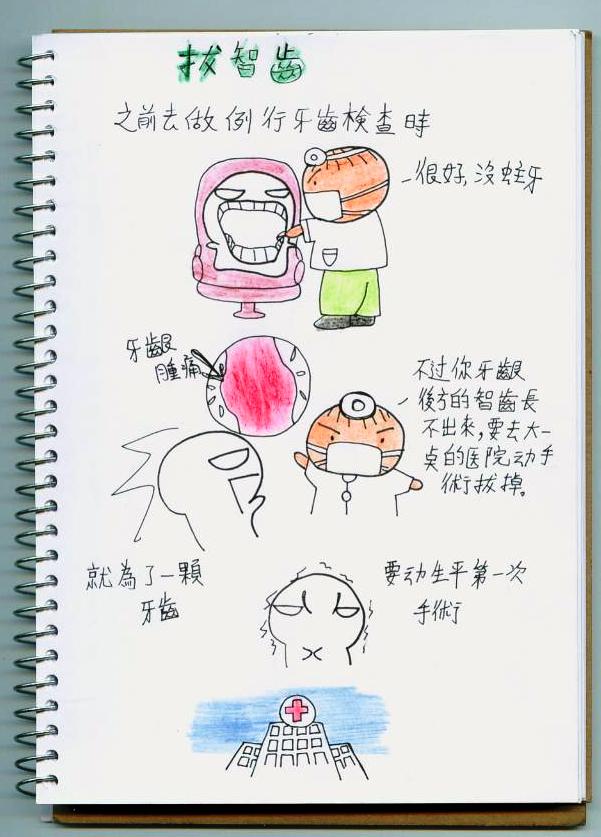 拔智齒
之前去做例行牙齒檢查時
很好,沒蛀牙
牙齦
腫痛
不过你牙齦
後方的智齒長
不出來,要去大一
点的医院动手
術拔掉。
就為了一顆
牙齒
要动生平第一次
手術